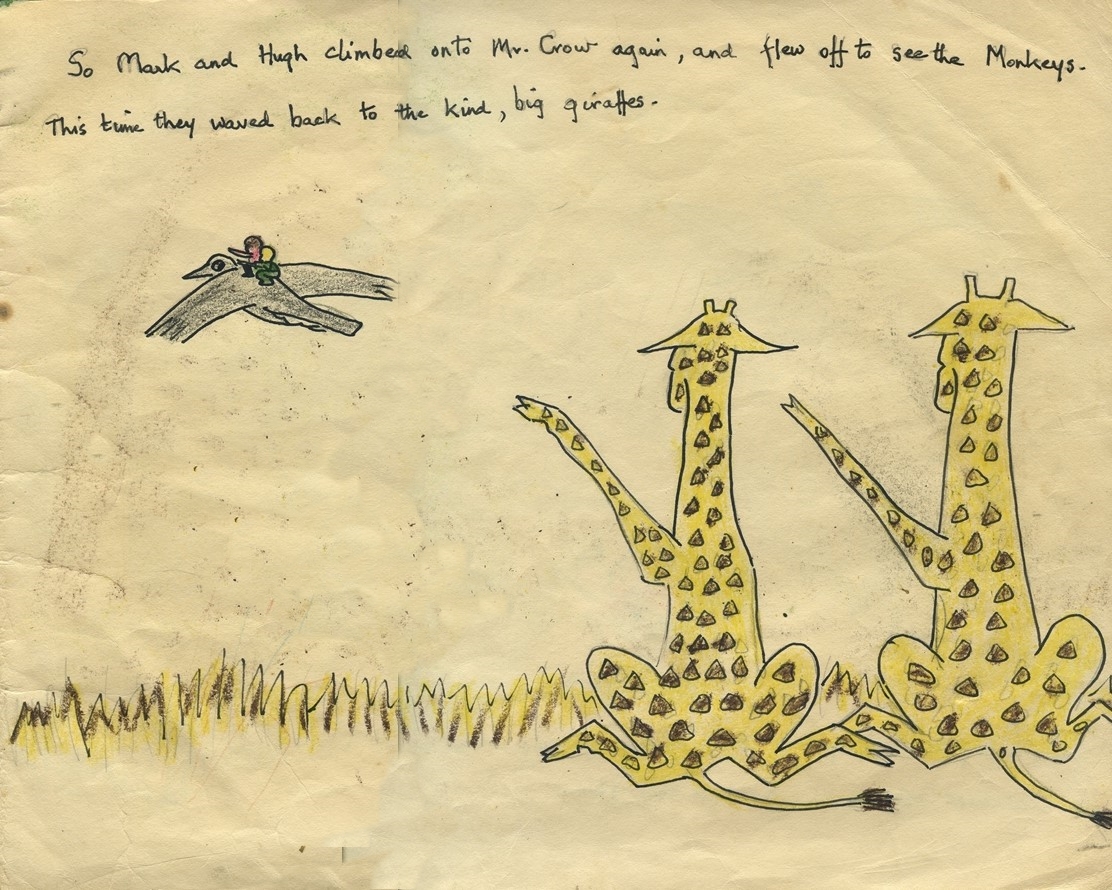 So Mark and Hugh climbed onto Mr. Crow again, and flew off to see the Monkeys.
This time they waved back to the kind, big giraffes.